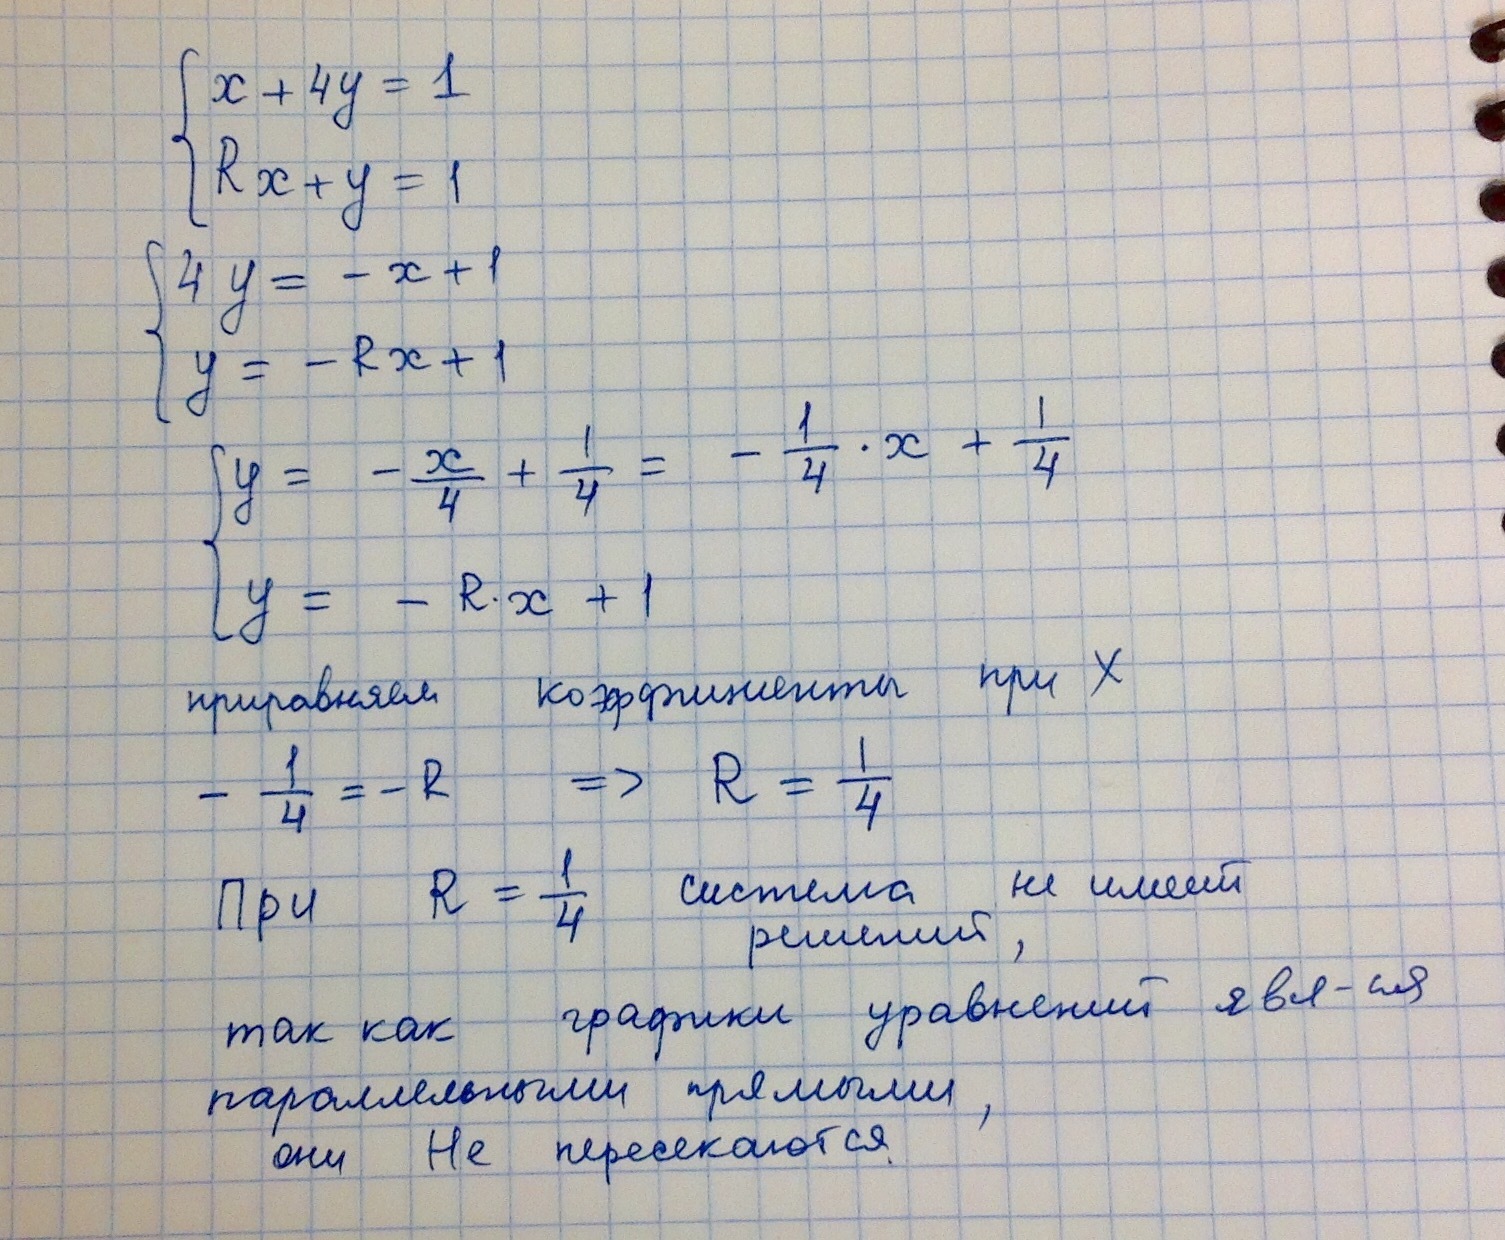 x + 4y = 1
Rx + y = 1
4y = -x + 1
y = -Rx + 1
y = -x/4 + 1/4 = -1/4 · x + 1/4
y = -R·x + 1
приравняем коэффициенты при X
-1/4 = -R => R = 1/4
При R = 1/4 система не имеет
решений,
так как графики уравнений явл-ся
параллельными прямыми,
они Не пересекаются.